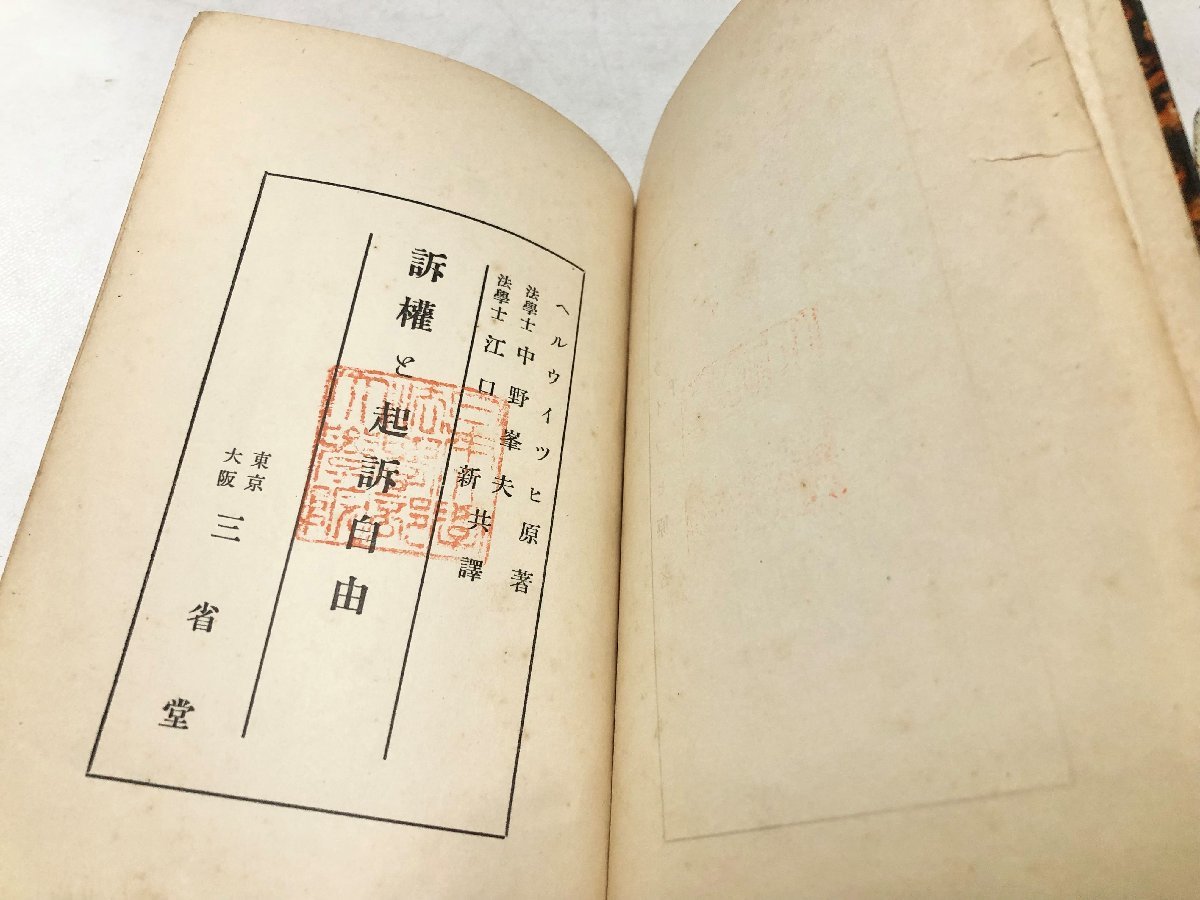 ヘルウイツヒ原著
法學士 中野峯夫
法學士 江口新 共譯
訴權と起訴自由
東京
大阪
三省堂